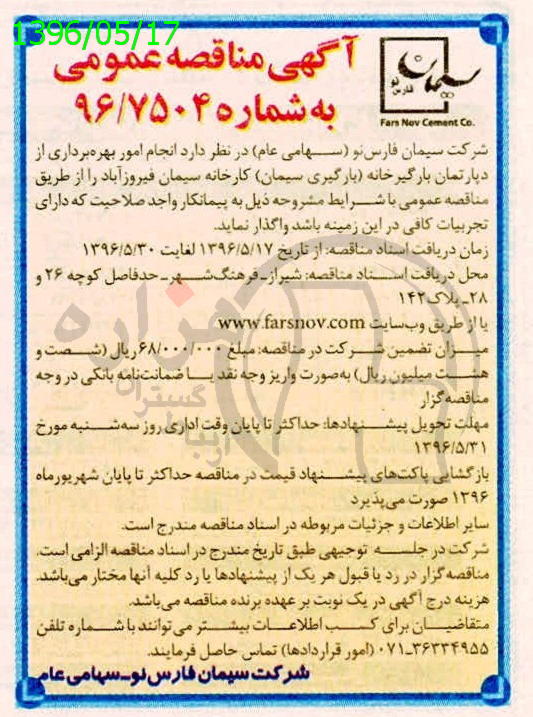 1396/05/17
آگهی مناقصه عمومی
به شماره ۹۶/۷۵۰۴
سیمان
فارس نو
Fars Nov Cement Co.
شرکت سیمان فارس نو (سهامی عام) در نظر دارد انجام امور بهره‌برداری از
دپارتمان بارگیرخانه (بارگیری سیمان) کارخانه سیمان فیروزآباد را از طریق
مناقصه عمومی با شرایط مشروحه ذیل به پیمانکار واجد صلاحیت که دارای
تجربیات کافی در این زمینه باشد واگذار نماید.
زمان دریافت اسناد مناقصه: از تاریخ ۱۳۹۶/۵/۱۷ لغایت ۱۳۹۶/۵/۳۰
محل دریافت اسناد مناقصه: شیراز-فرهنگ‌شهر-حدفاصل کوچه ۲۶ و
۲۸-پلاک ۱۴۲
یا از طریق وب‌سایت www.farsnov.com
میزان تضمین شرکت در مناقصه: مبلغ ۶۸/۰۰۰/۰۰۰ ریال (شصت و
هشت میلیون ریال) به‌صورت واریز وجه نقد یا ضمانت‌نامه بانکی در وجه
مناقصه‌گزار
مهلت تحویل پیشنهادها: حداکثر تا پایان وقت اداری روز سه‌شنبه مورخ
۱۳۹۶/۵/۳۱
بازگشایی پاکت‌های پیشنهاد قیمت در مناقصه حداکثر تا پایان شهریورماه
۱۳۹۶ صورت می‌پذیرد
سایر اطلاعات و جزئیات مربوطه در اسناد مناقصه مندرج است.
شرکت در جلسه توجیهی طبق تاریخ مندرج در اسناد مناقصه الزامی است.
مناقصه‌گزار در رد یا قبول هر یک از پیشنهادها یا رد کلیه آنها مختار می‌باشد.
هزینه درج آگهی در یک نوبت بر عهده برنده مناقصه می‌باشد.
متقاضیان برای کسب اطلاعات بیشتر می‌توانند با شماره تلفن
۰۷۱-۳۶۳۳۴۹۵۵ (امور قراردادها) تماس حاصل فرمایند.
شرکت سیمان فارس نو-سهامی عام